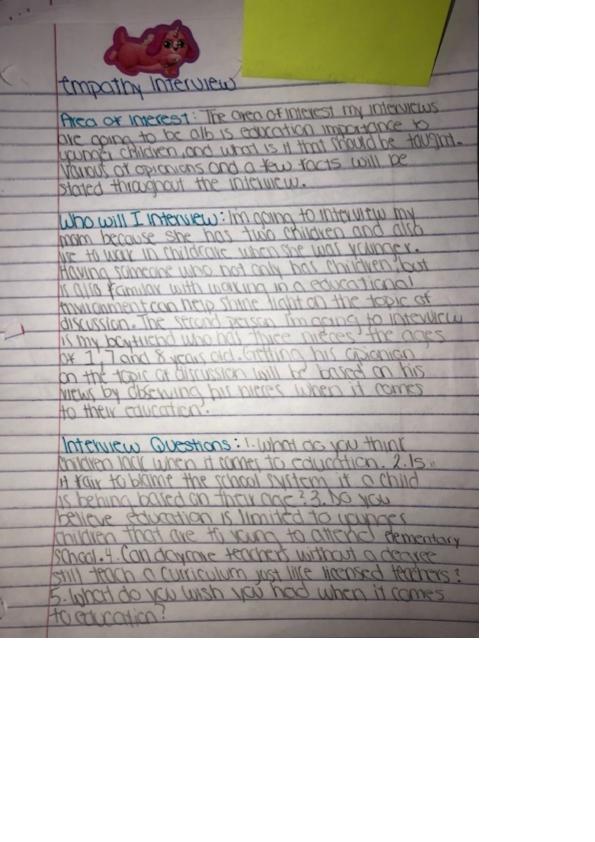 Empathy Interview
Area of interest: The area of interest my interviews
are going to be a/b is education importance to
younger children, and what is it that should be taught.
Various of opionions and a few facts will be
stated throughout the interview.
Who will I interview: Im going to interview my
mom because she has two children and also
use to work in childcare when she was younger.
Having someone who not only has children, but
is also familar with working in a educational
environment can help shine light on the topic of
discussion. The second person Im going to interview
is my boyfriend who has three nieces the ages
of 1, 7 and 8 years old. Getting his opionion
on the topic of discussion will be based on his
views by observing his nieces when it comes
to their education.
Interview Questions: 1. What do you think
children lack when it comes to education. 2. Is
it fair to blame the school system if a child
is behing based on their age? 3. Do you
believe education is limited to younger
children that are to young to attend elementary
school. 4. Can daycare teachers without a degree
still teach a curriculum just like licensed teachers?
5. What do you wish you had when it comes
to education?